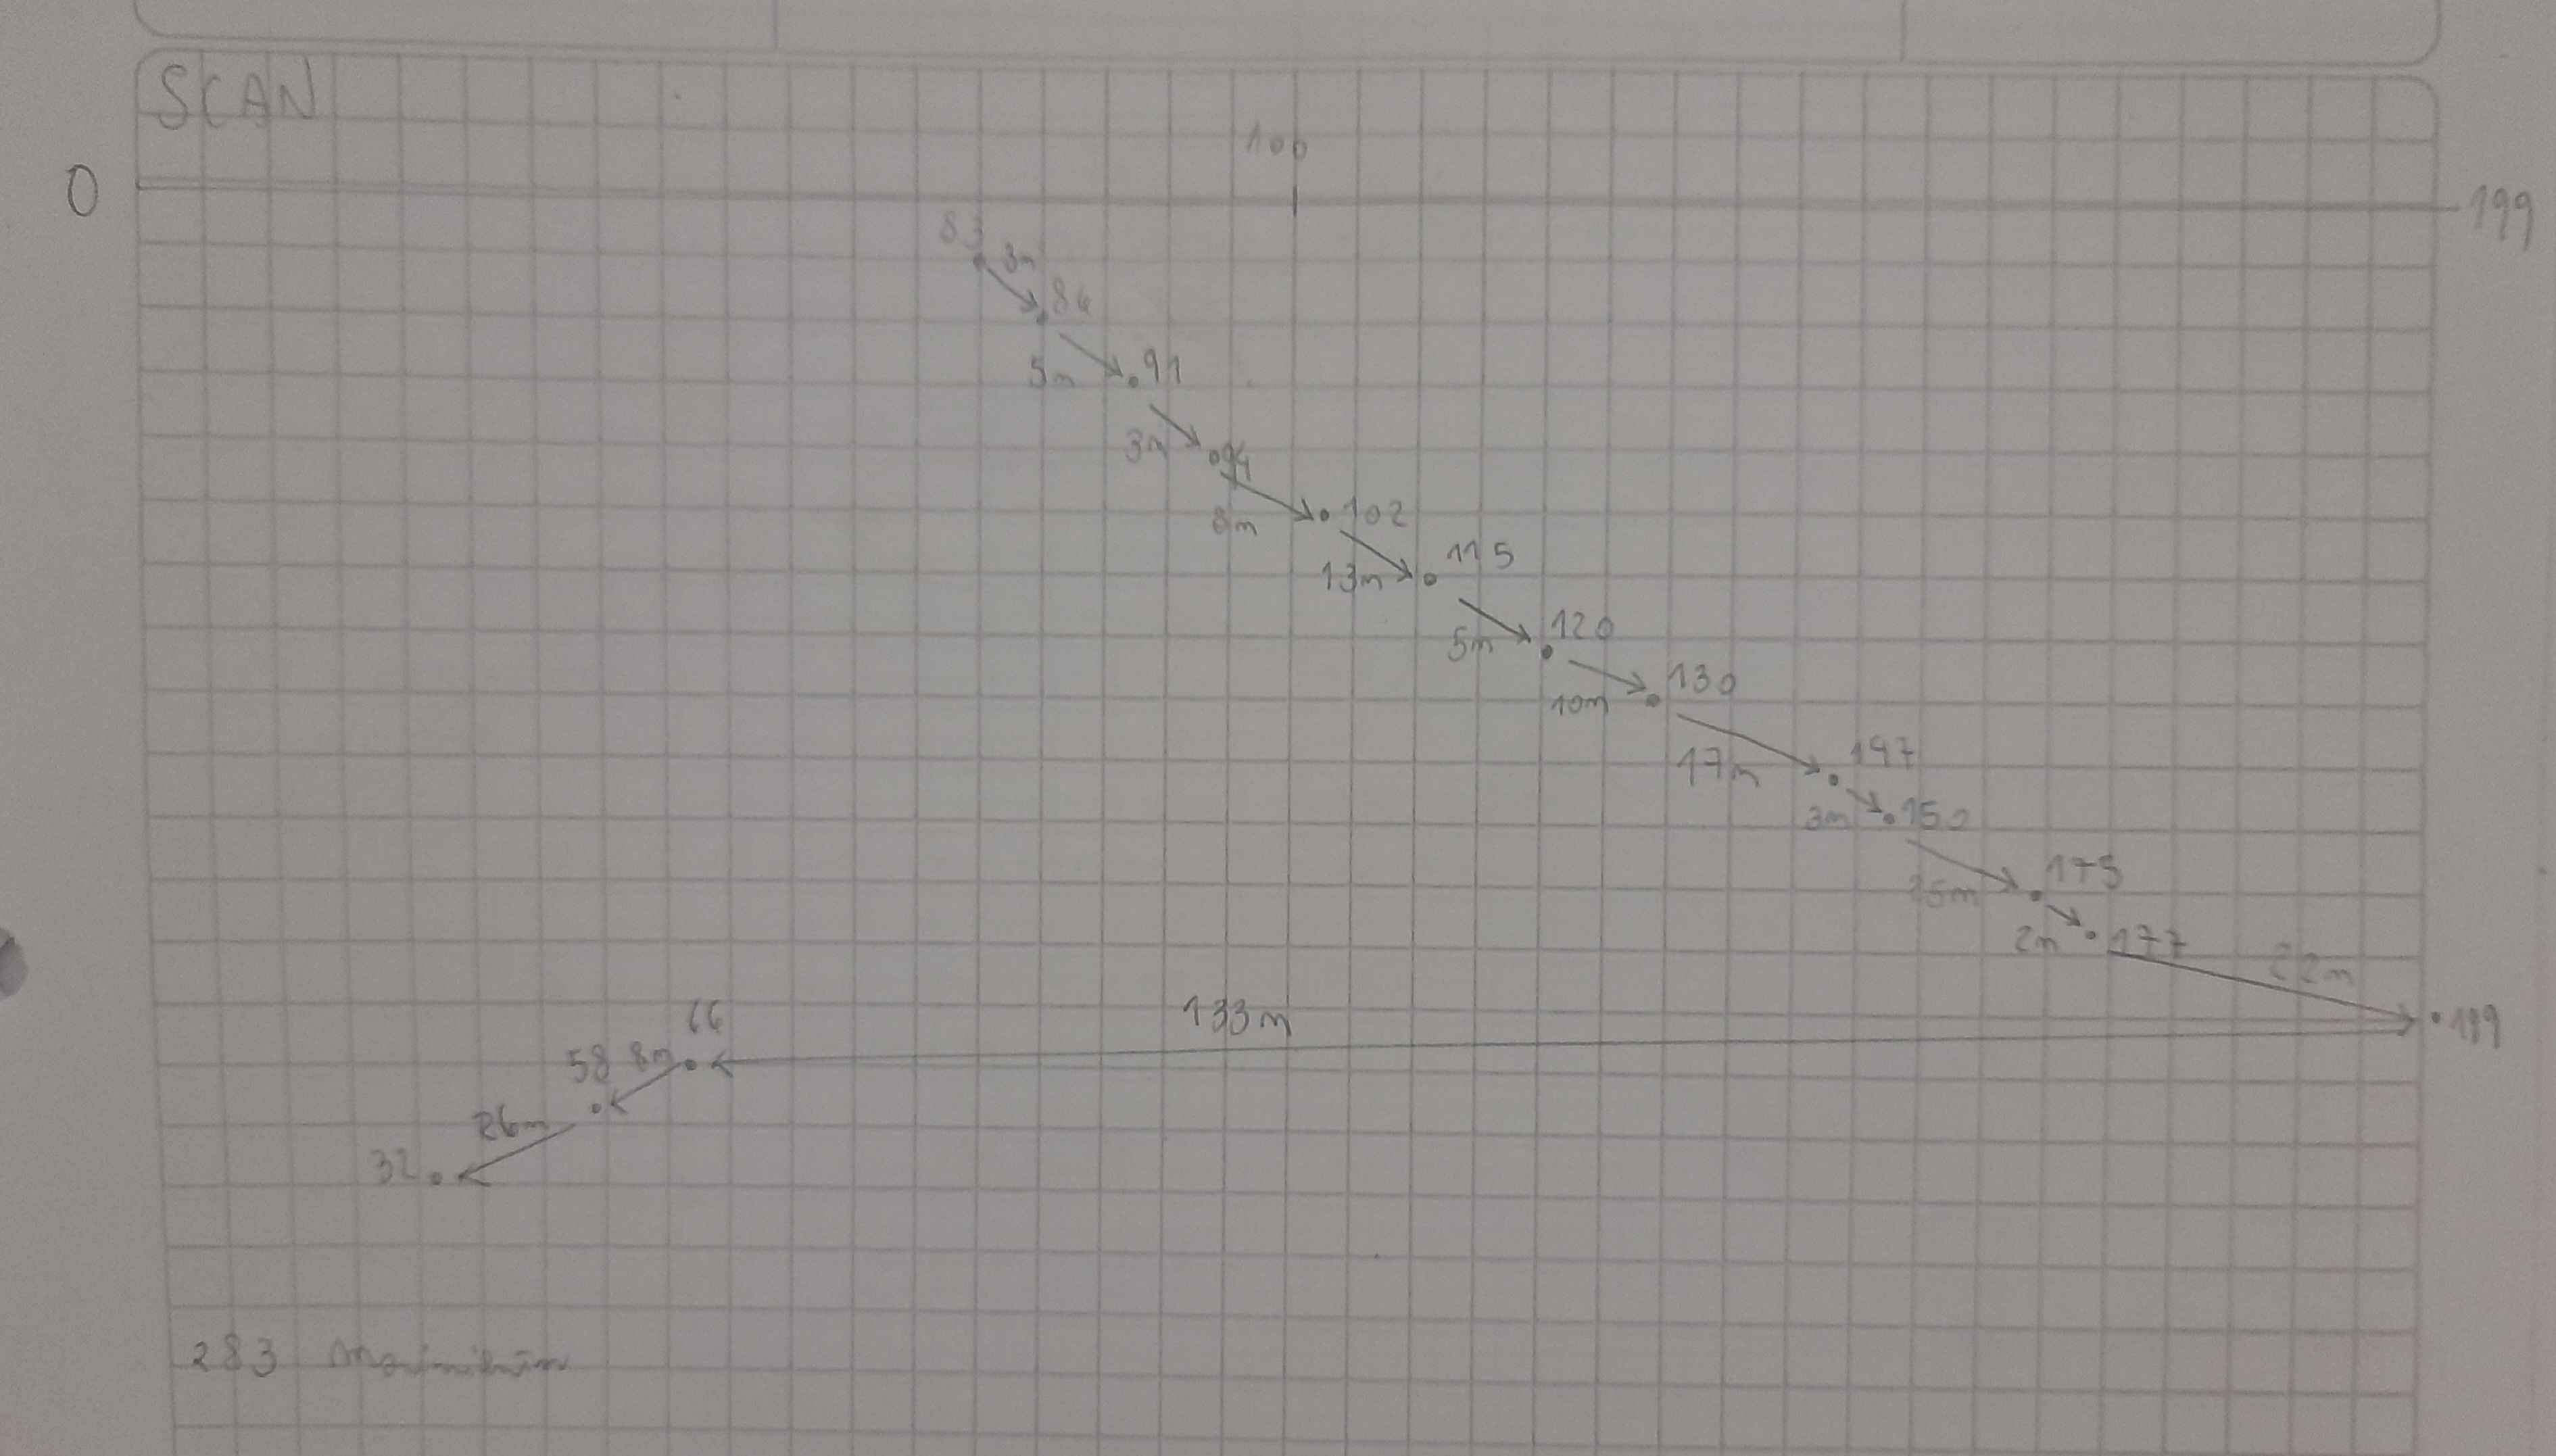 SCAN
100
0
199
83
3m
86
5m
91
3m
94
8m
102
13m
115
5m
120
10m
130
17m
147
3m
150
25m
175
2m
177
22m
199
133m
66
8m
58
26m
32
283